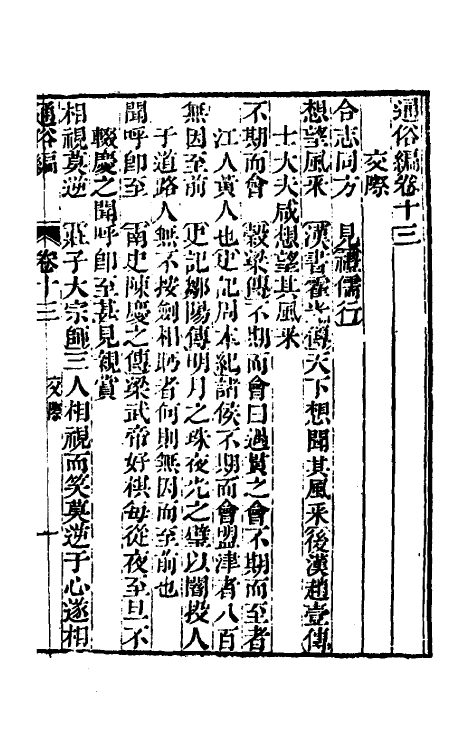 通俗編卷十三
交際
合志同方　見禮儒行
想望風采　漢書霍光傳天下想聞其風采後漢趙壹傳
士大夫咸想望其風采
不期而會　穀梁傳不期而會曰遇質之會不期而至者
江人黃人也史記周本紀諸侯不期而會盟津者八百
無因至前　史記鄒陽傳明月之珠夜光之璧以闇投人
于道路人無不按劍相眄者何則無因而至前也
聞呼卽至　南史陳慶之傳梁武帝好棋每從夜至旦不
輟慶之聞呼卽至甚見親賞
相視莫逆　莊子大宗師三人相視而笑莫逆于心遂相
通俗編　卷十三　交際　一